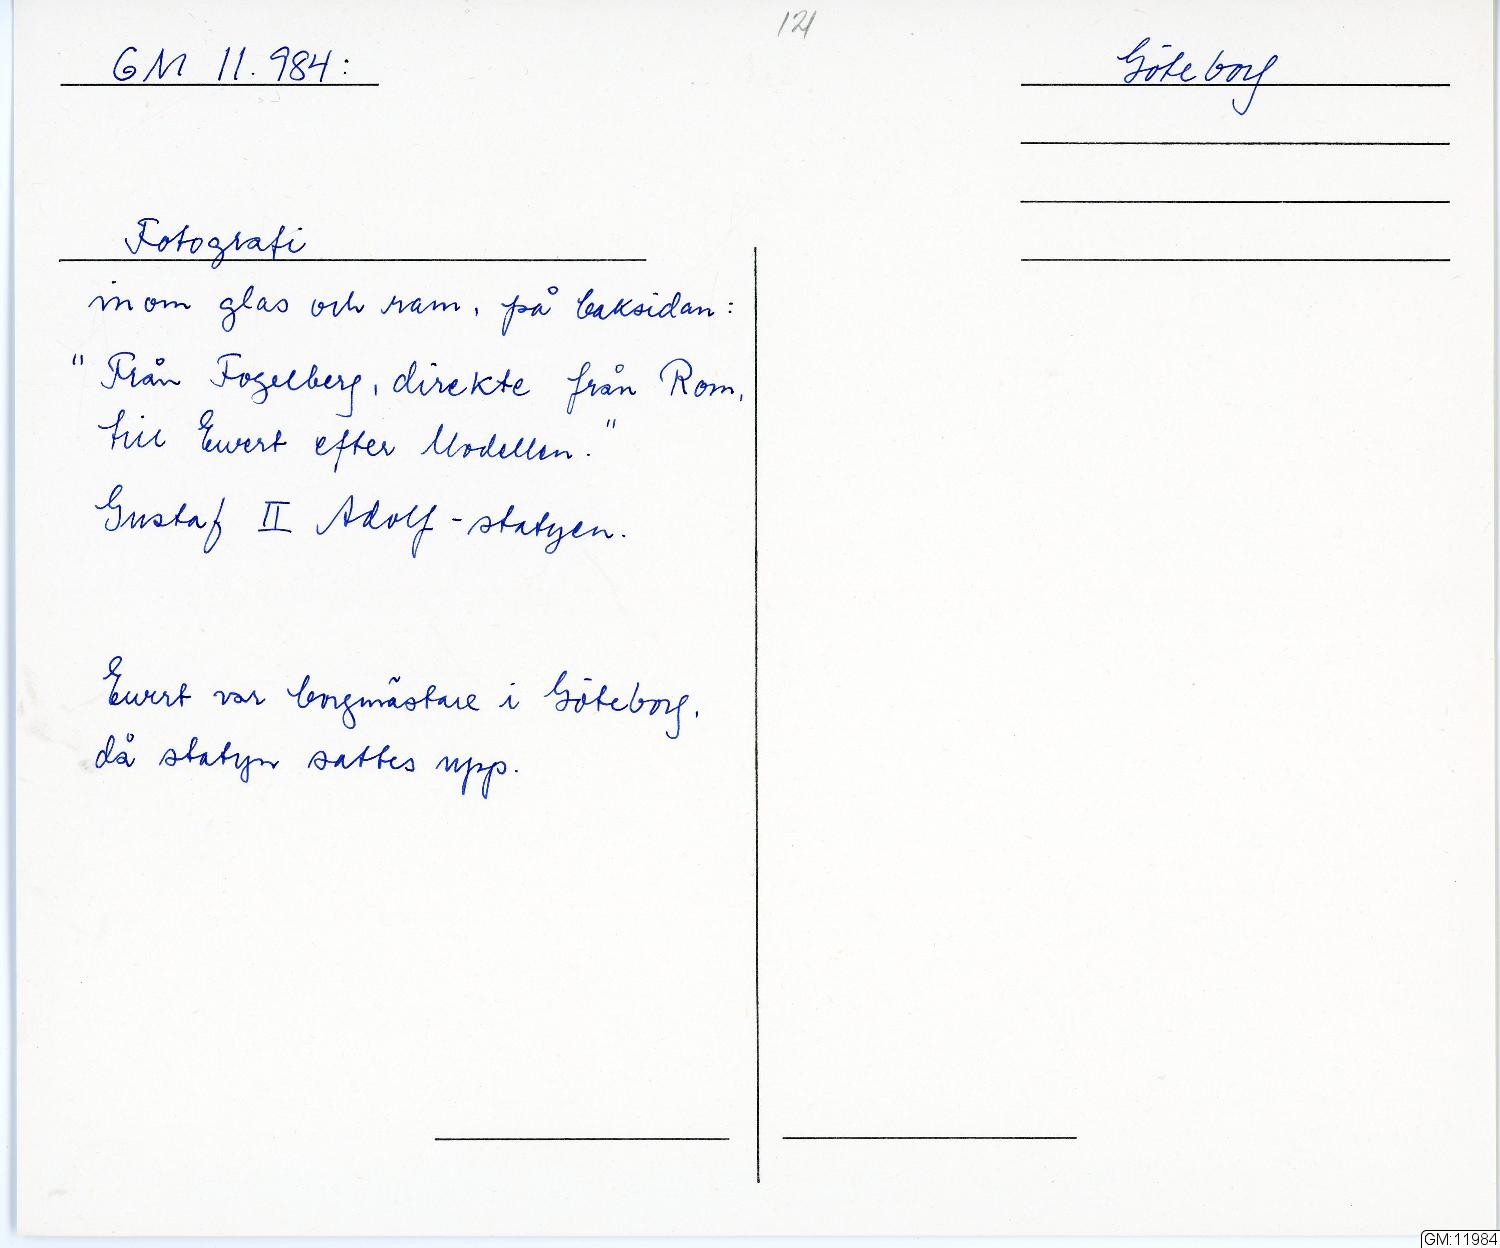 121
GM 11.984:
Göteborg
Fotografi
inom glas och ram, på baksidan:
"Från Fogelberg, direkte från Rom,
till Ewert efter Modellen."
Gustaf II Adolf-statyen.
Ewert var borgmästare i Göteborg,
då statyn sattes upp.
GM:11984